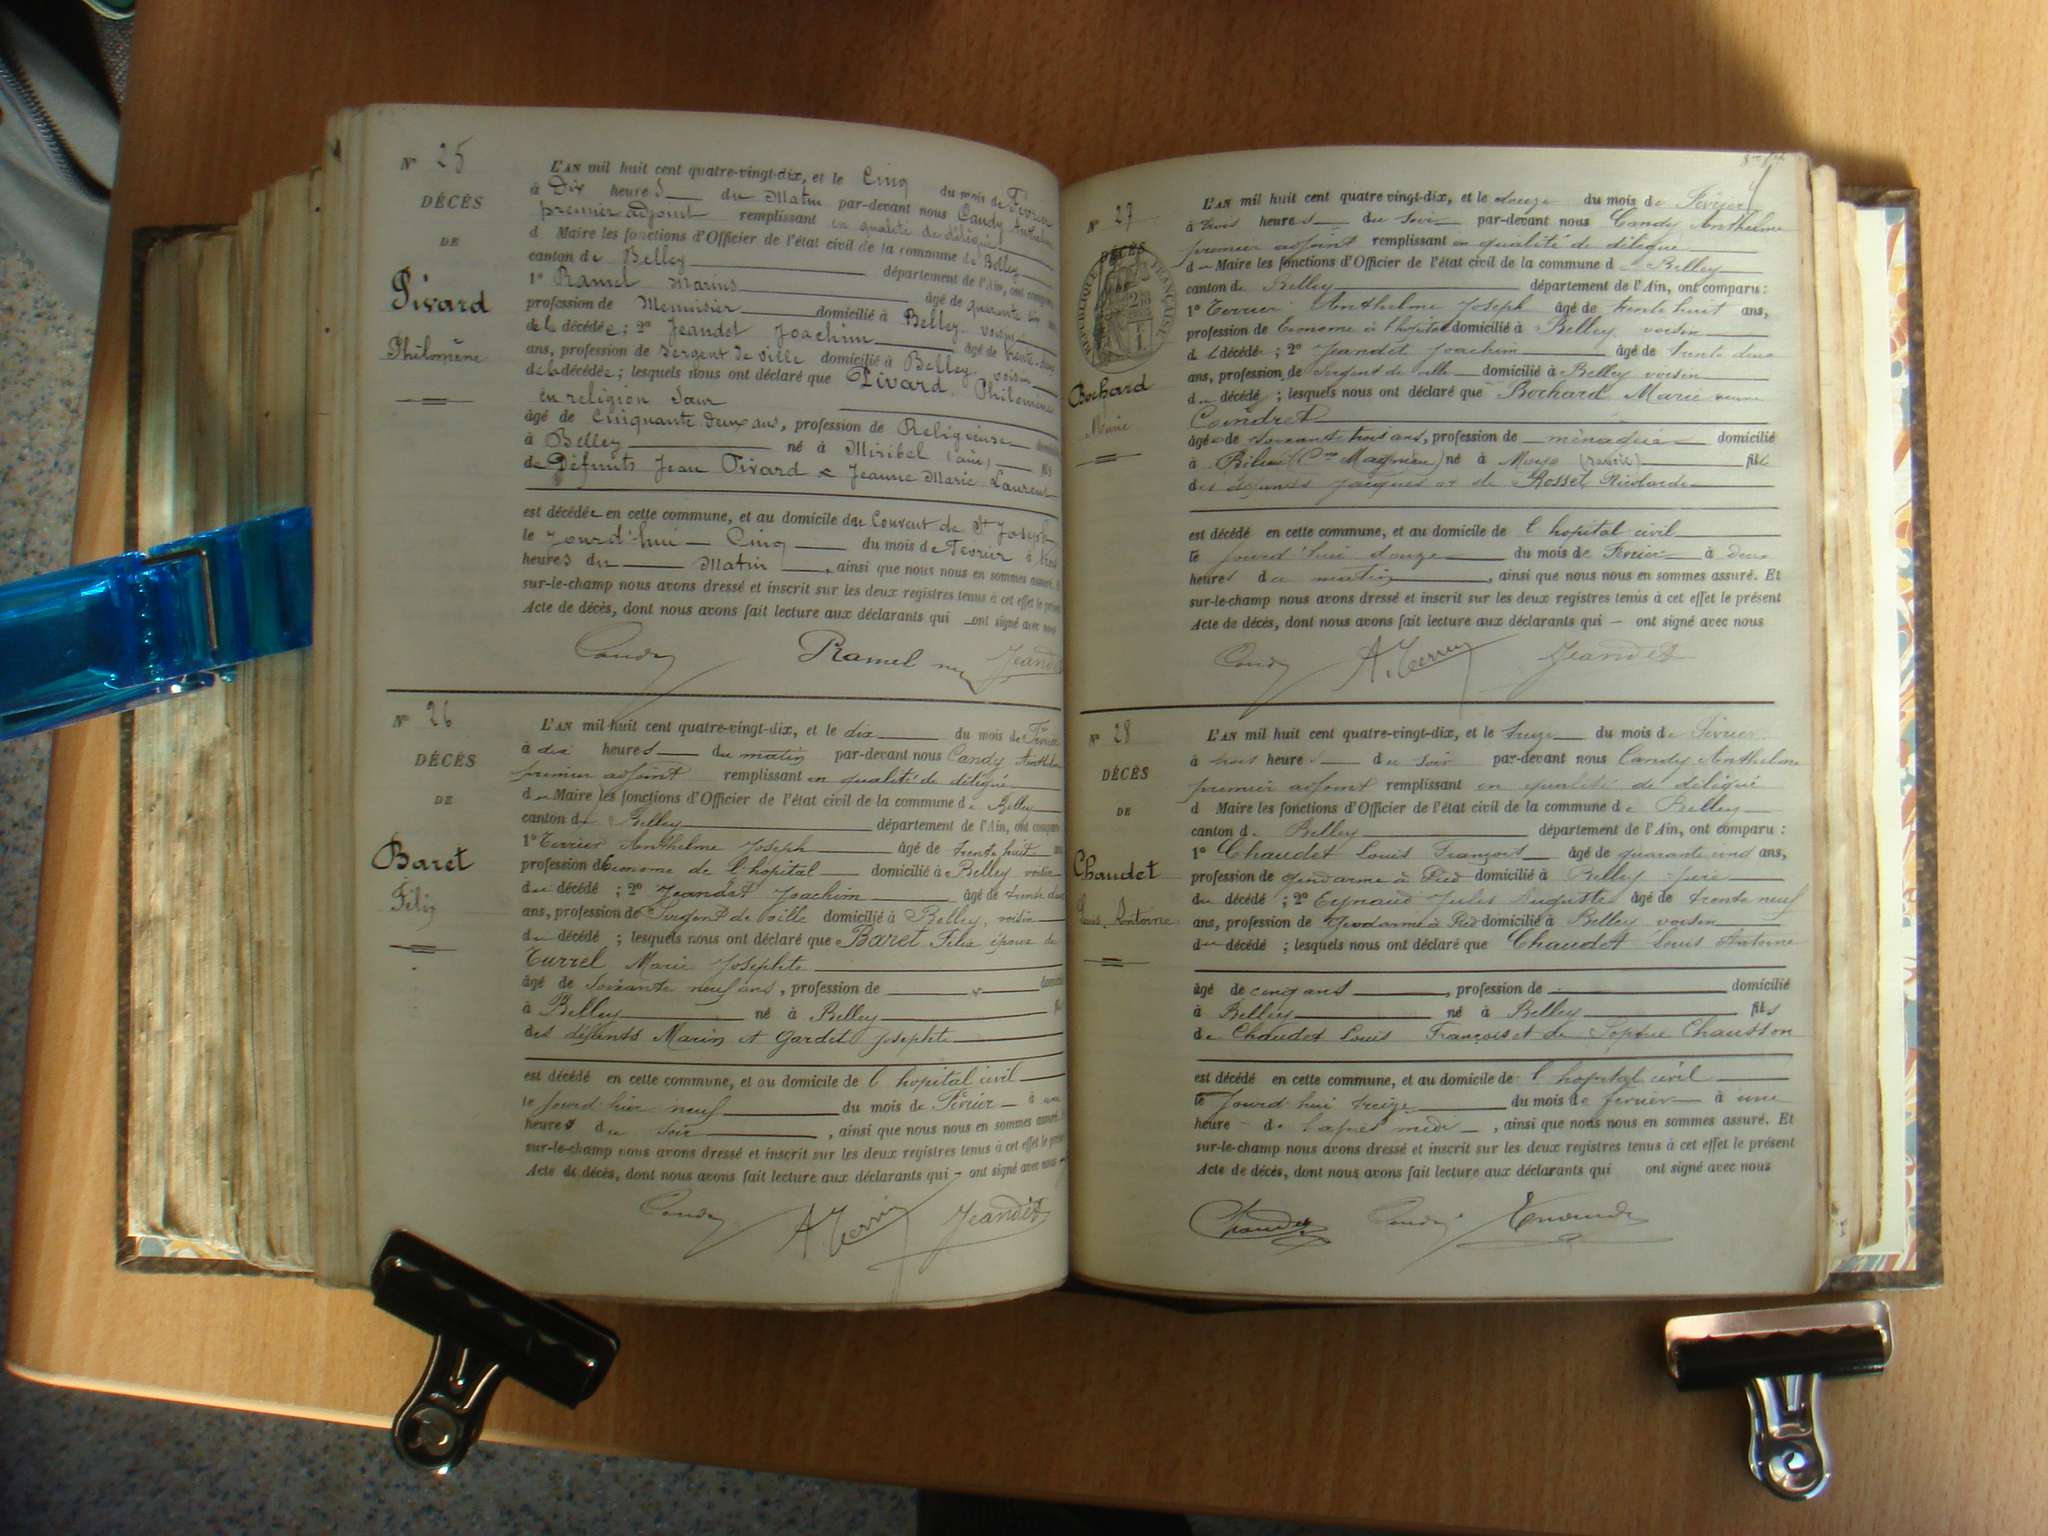 N° 25
DÉCÈS
DE
Pivard
Philomène
L'AN mil huit cent quatre-vingt-dix, et le Cinq du mois de Février
à Dix heures du Matin par-devant nous Candy Anthelme
premier adjoint remplissant en qualité de délégué
d Maire les fonctions d'Officier de l'état civil de la commune de Belley
canton de Belley département de l'Ain, ont comparu
1° Ramel Marius âgé de quarante
profession de Menuisier domicilié à Belley voisin
de la décédée ; 2° Jeandet Joachim âgé de trente-deux
ans, profession de Sergent de ville domicilié à Belley, voisin
de la décédée ; lesquels nous ont déclaré que Pivard Philomène
en religion Sœur
âgé de Cinquante deux ans, profession de Religieuse
à Belley né à Miribel (ain)
de Défunts Jean Pivard & Jeanne Marie Laurent
est décédée en cette commune, et au domicile du Couvent de St Joseph
le Jourd'hui Cinq du mois de Février à
heures du Matin, ainsi que nous nous en sommes assuré.
sur-le-champ nous avons dressé et inscrit sur les deux registres tenus à cet effet le présent
Acte de décès, dont nous avons fait lecture aux déclarants qui ont signé avec nous
Candy Ramel Jeandet
N° 26
DÉCÈS
DE
Baret
Félix
L'AN mil huit cent quatre-vingt-dix, et le dix du mois de Février
à dix heures du matin par-devant nous Candy Anthelme
premier adjoint remplissant en qualité de délégué
du Maire les fonctions d'Officier de l'état civil de la commune de Belley
canton de Belley département de l'Ain, ont comparu
1° Terrier Anthelme Joseph âgé de trente huit ans
profession d'Econome de l'hopital domicilié à Belley voisin
du décédé ; 2° Jeandet Joachim âgé de trente deux
ans, profession de Sergent de ville domicilié à Belley, voisin
du décédé ; lesquels nous ont déclaré que Baret Félix époux de
Turrel Marie Josephte
âgé de soixante neuf ans, profession de domicilié
à Belley né à Belley fils
des défunts Marin et Gardet Josephte
est décédé en cette commune, et au domicile de l'hopital civil
le jourd-hier neuf du mois de Février à une
heures du soir, ainsi que nous nous en sommes assuré.
sur-le-champ nous avons dressé et inscrit sur les deux registres tenus à cet effet le présent
Acte de décès, dont nous avons fait lecture aux déclarants qui ont signé avec nous
Candy A Terrier Jeandet
N° 27
DÉCÈS
RÉPUBLIQUE FRANÇAISE
Bochard
Marie
L'AN mil huit cent quatre-vingt-dix, et le douze du mois de Février
à trois heures du soir par-devant nous Candy Anthelme
premier adjoint remplissant en qualité de délégué
du Maire les fonctions d'Officier de l'état civil de la commune de Belley
canton de Belley département de l'Ain, ont comparu :
1° Terrier Anthelme Joseph âgé de trente huit ans,
profession de Econome à l'hopital domicilié à Belley voisin
d décédé ; 2° Jeandet Joachim âgé de trente deux
ans, profession de Sergent de ville domicilié à Belley voisin
du décédé ; lesquels nous ont déclaré que Bochard Marie veuve
Coindret
âgée de soixante trois ans, profession de ménagère domicilié
à né à (Savoie) fille
des défunts Jacques et de Rosset
est décédé en cette commune, et au domicile de l'hopital civil
le jourd'hui douze du mois de Février à deux
heures du matin, ainsi que nous nous en sommes assuré. Et
sur-le-champ nous avons dressé et inscrit sur les deux registres tenus à cet effet le présent
Acte de décès, dont nous avons fait lecture aux déclarants qui ont signé avec nous
Candy A. Terrier Jeandet
N° 28
DÉCÈS
DE
Chaudet
Louis Antoine
L'AN mil huit cent quatre-vingt-dix, et le treize du mois de Février
à trois heures du soir par-devant nous Candy Anthelme
premier adjoint remplissant en qualité de délégué
d Maire les fonctions d'Officier de l'état civil de la commune de Belley
canton de Belley département de l'Ain, ont comparu :
1° Chaudet Louis François âgé de quarante cinq ans,
profession de gendarme à Pied domicilié à Belley père
du décédé ; 2° Eynaud Jules Auguste âgé de trente neuf
ans, profession de Gendarme à Pied domicilié à Belley voisin
du décédé ; lesquels nous ont déclaré que Chaudet Louis Antoine
âgé de cinq ans, profession de domicilié
à Belley né à Belley fils
de Chaudet Louis François et de Sophie Chausson
est décédé en cette commune, et au domicile de l'hopital civil
le jourd'hui treize du mois de février à une
heure de l'après midi, ainsi que nous nous en sommes assuré. Et
sur-le-champ nous avons dressé et inscrit sur les deux registres tenus à cet effet le présent
Acte de décès, dont nous avons fait lecture aux déclarants qui ont signé avec nous
Chaudet Candy Eynaud